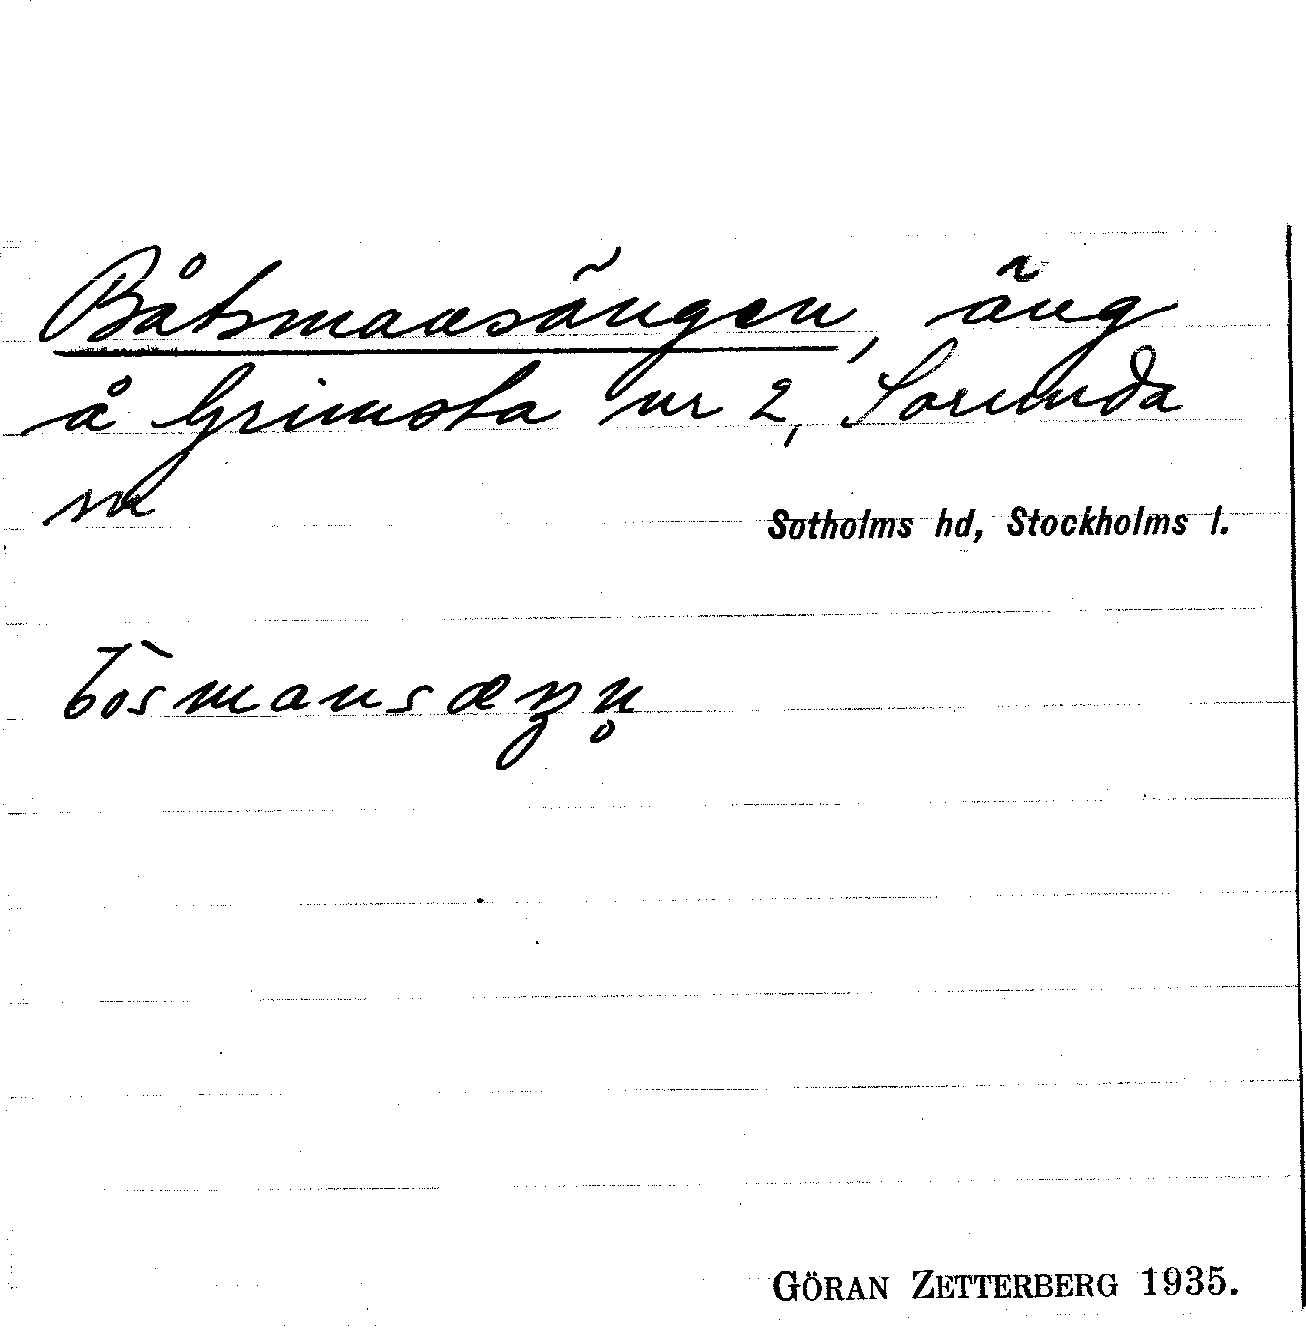 Båtsmansängen, äng
å Grimsta nr 2, Sorunda
sn
Sotholms hd, Stockholms l.
bo̅s̀mansæŋn̥
GÖRAN ZETTERBERG 1935.